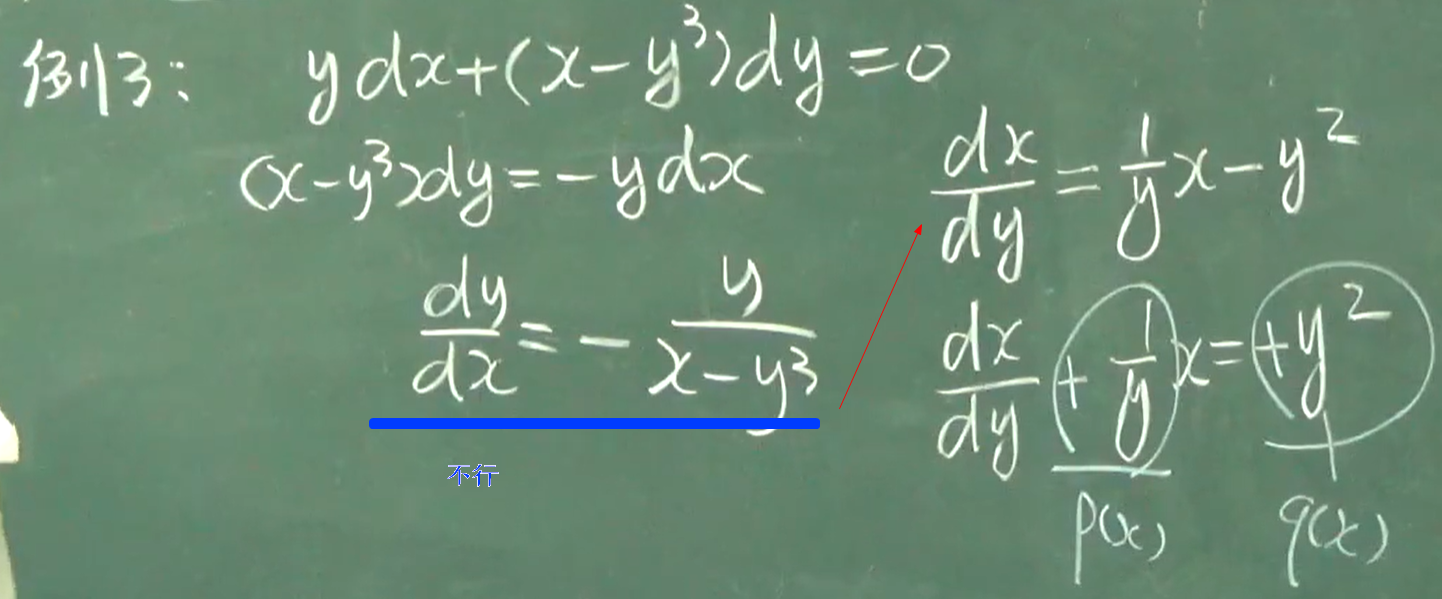 例3: ydx+(x-y³)dy=0
(x-y³)dy=-ydx
dy/dx=-y/(x-y³)
不行
dx/dy=1/y x-y²
dx/dy+1/y x=+y²
p(x) q(x)